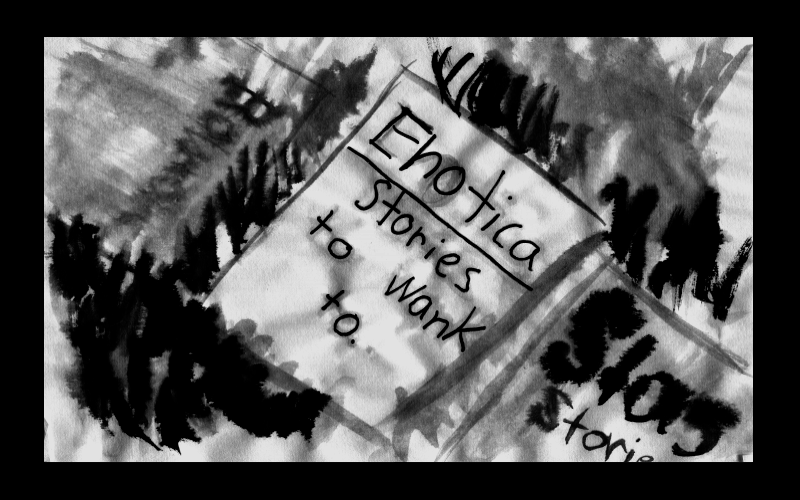 Ehotica
Stories
to wank
to.
Slag
Storie